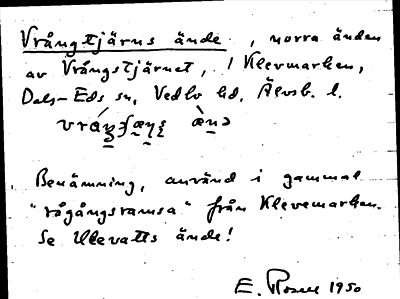 Vrångtjärns ände, norra änden
av Vrångstjärnet, i Klevmarken,
Dals-Eds sn, Vedbo hd, Älvsb. l.
Benämning, använd i gammal
"rågångsramsa" från Klevemarken.
Se Ulevatts ände!
E. Rosell 1950